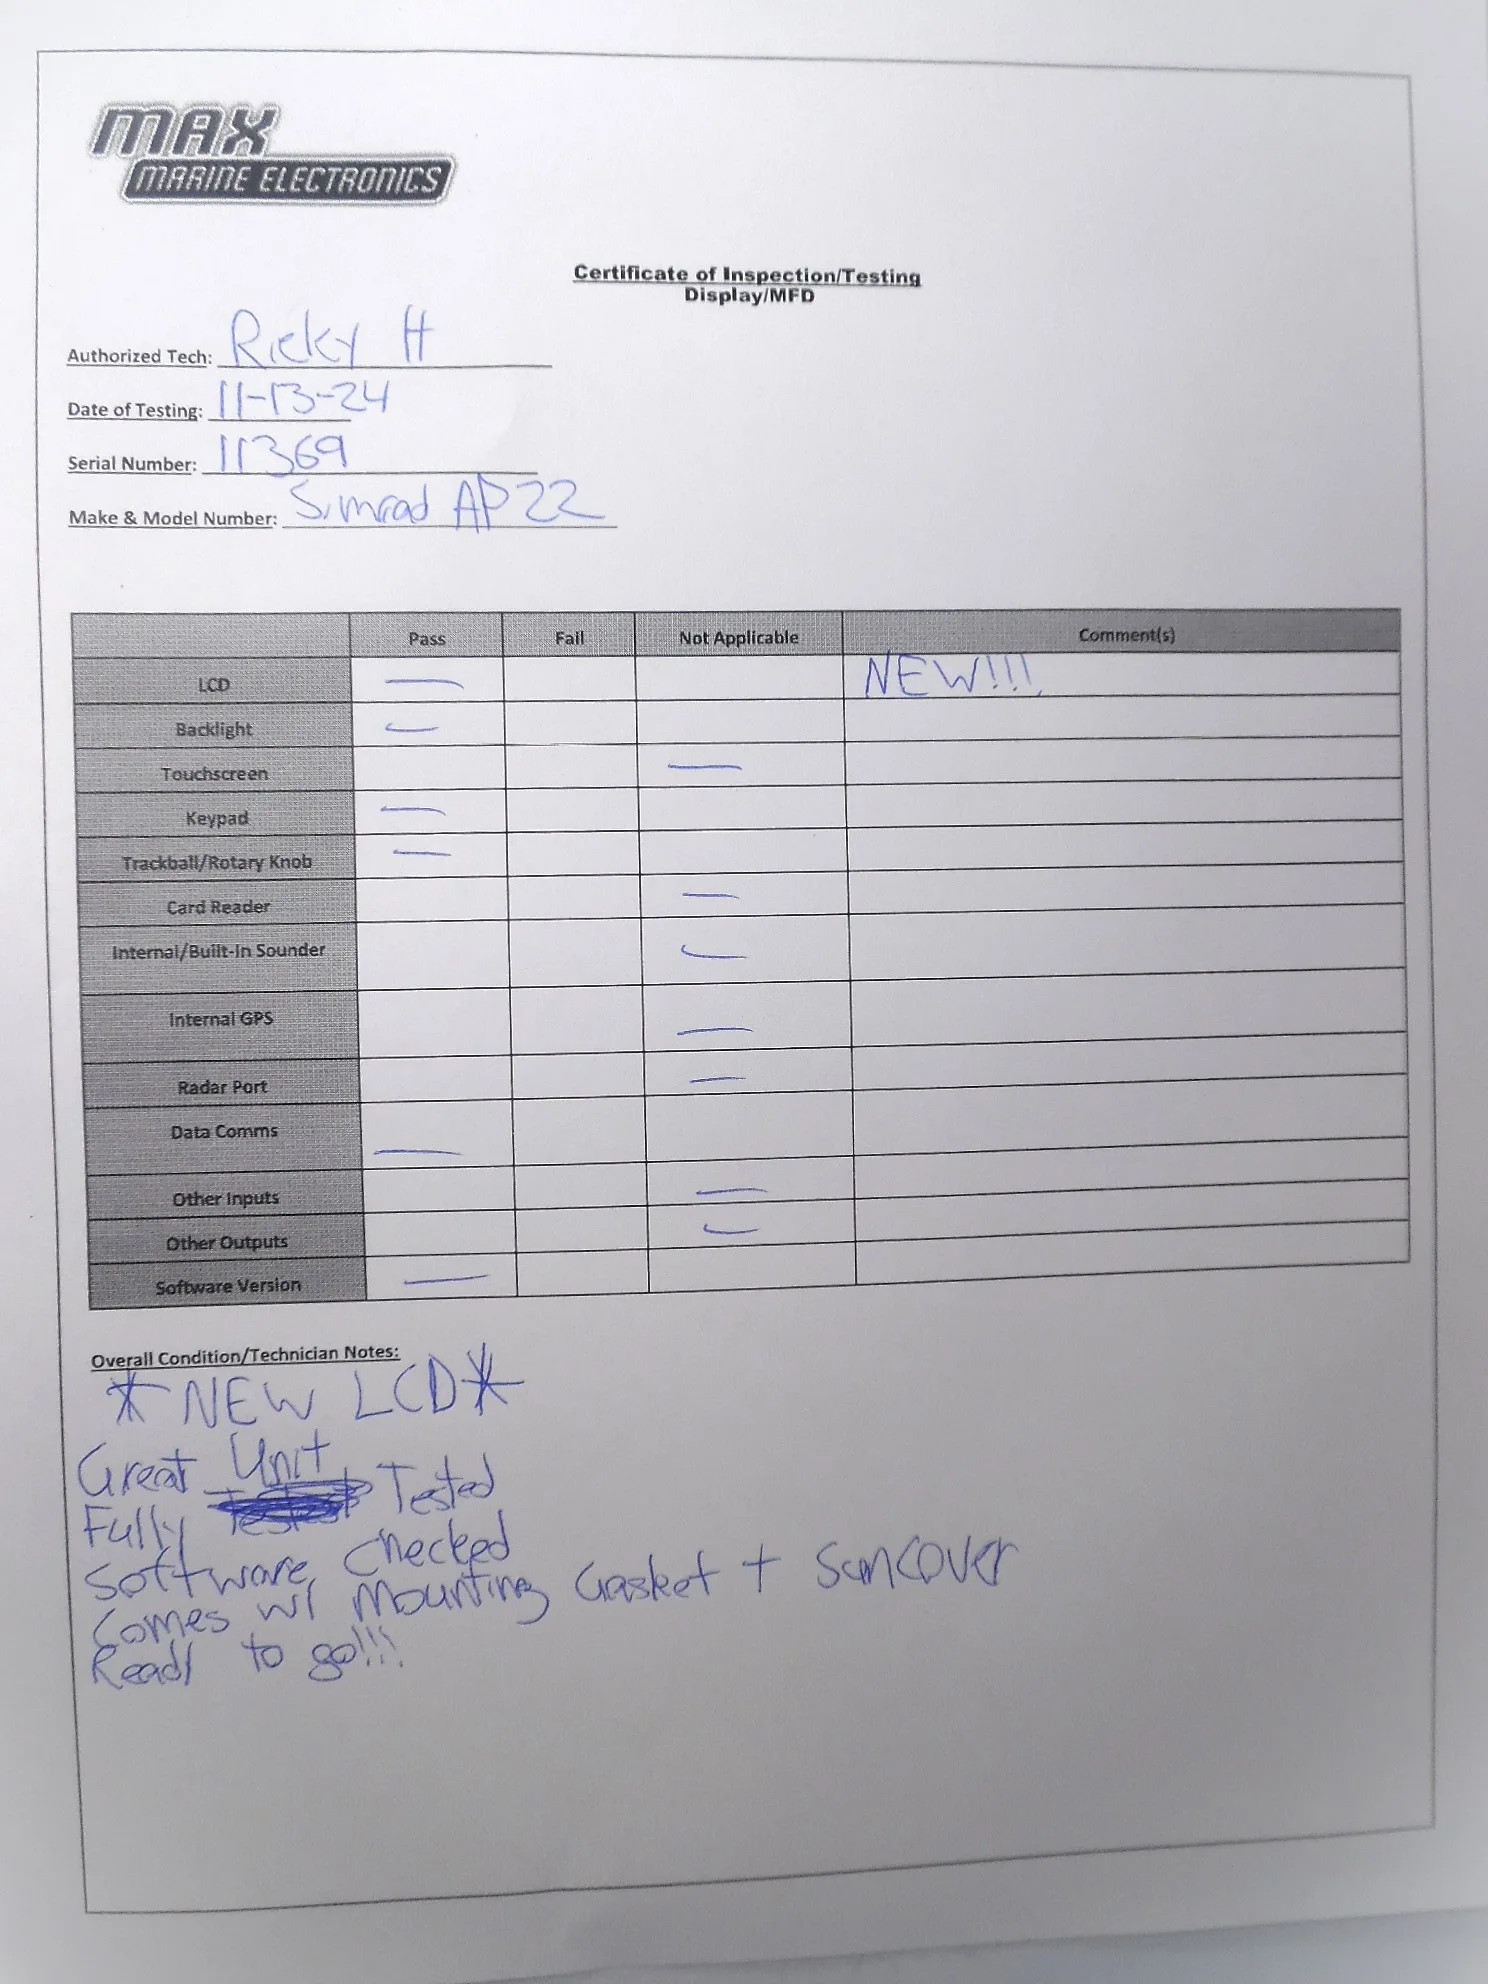 MAX
MARINE ELECTRONICS
Certificate of Inspection/Testing
Display/MFD
Authorized Tech: Ricky H
Date of Testing: 11-13-24
Serial Number: 11369
Make & Model Number: Simrad AP22
Pass Fail Not Applicable Comment(s)
LCD — NEW!!!
Backlight —
Touchscreen —
Keypad —
Trackball/Rotary Knob —
Card Reader —
Internal/Built-In Sounder —
Internal GPS —
Radar Port —
Data Comms —
Other Inputs —
Other Outputs —
Software Version —
Overall Condition/Technician Notes:
*NEW LCD*
Great Unit
Fully Tested
Software Checked
Comes w/ Mounting Gasket + Suncover
Ready to go!!!